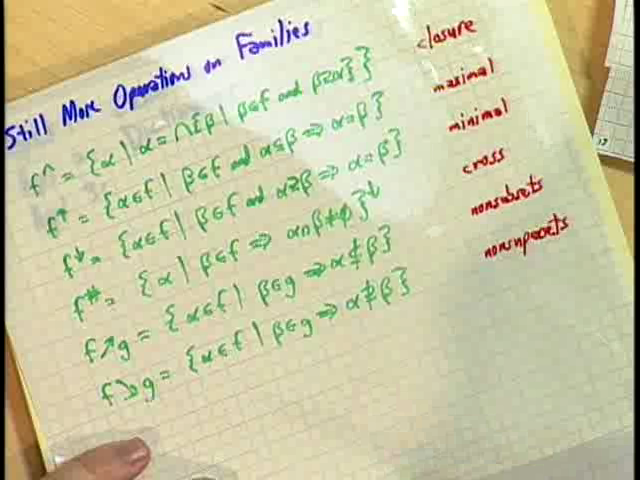 Still More Operations on Families
f^ = {α | α = ∩{β | β∈f and β⊇α}} closure
f↑ = {α∈f | β∈f and α⊆β ⇒ α=β} maximal
f↓ = {α∈f | β∈f and α⊇β ⇒ α=β} minimal
f# = {α | β∈f ⇒ α∩β≠∅}↓ cross
f↗g = {α∈f | β∈g ⇒ α⊈β} nonsubsets
f↘g = {α∈f | β∈g ⇒ α⊉β} nonsupersets